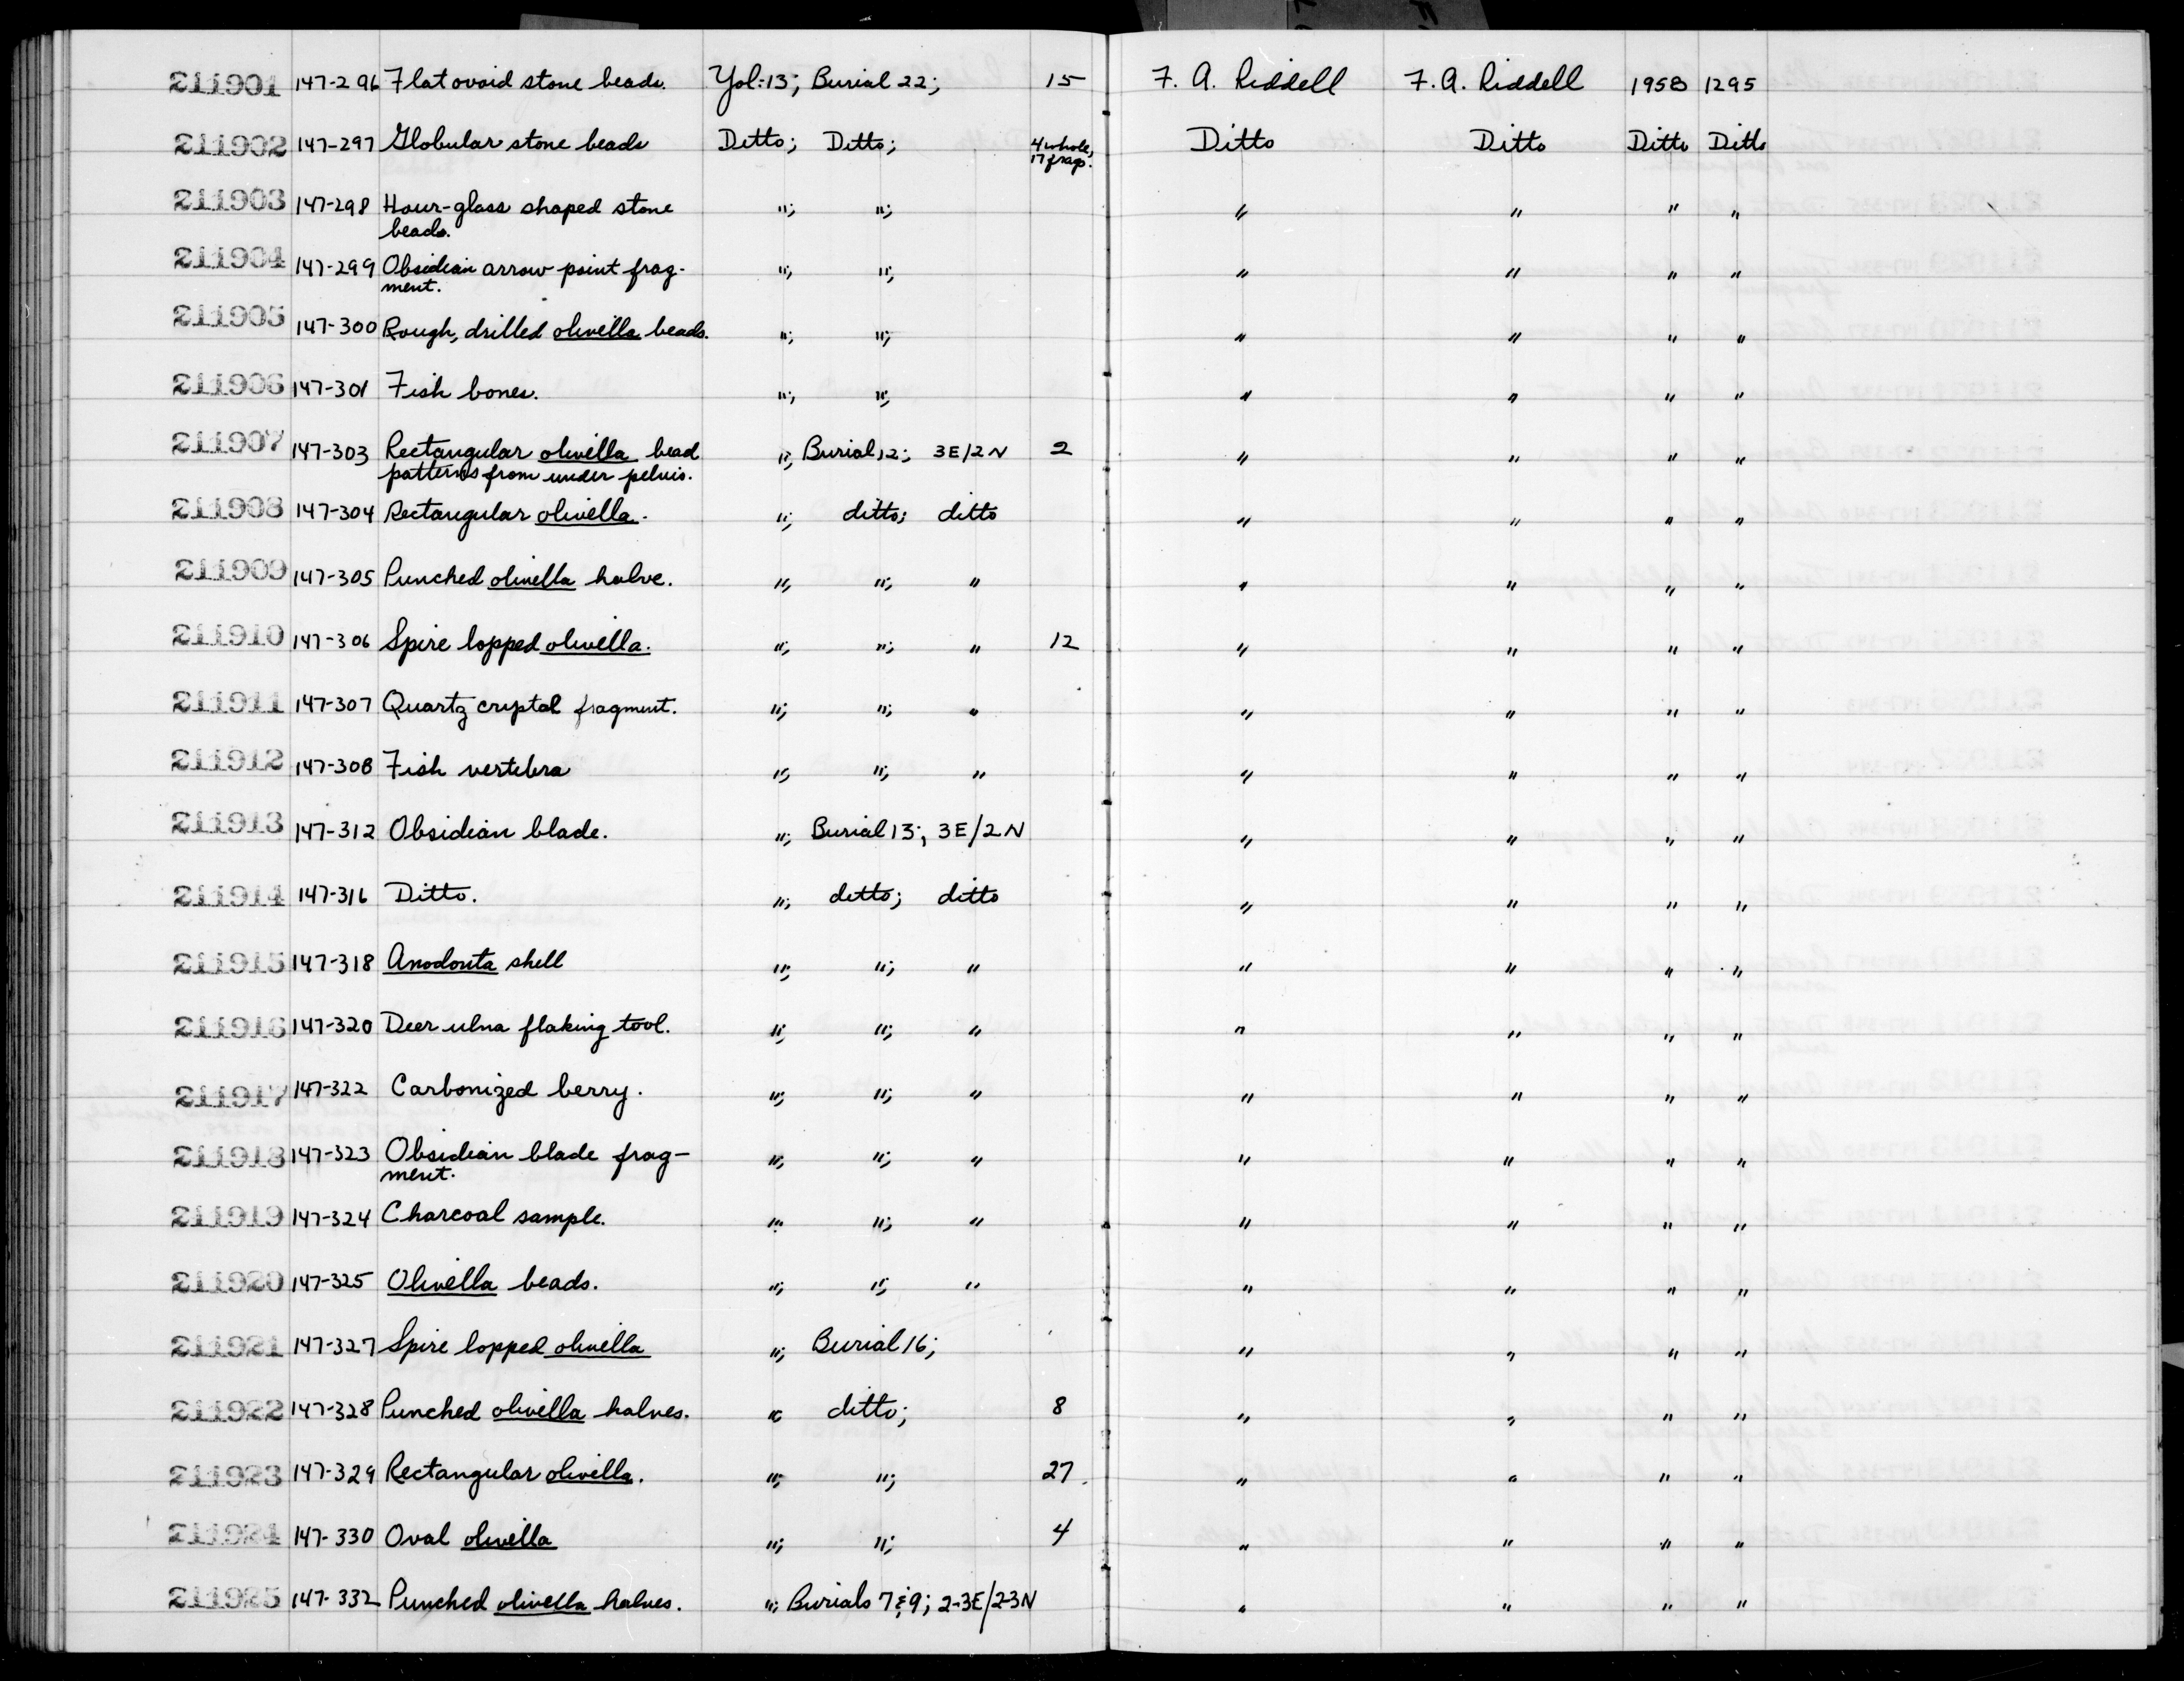 211901 147-296 Flat ovoid stone beads. Yol:13; Burial 22; 15 F. A. Riddell F. A. Riddell 1958 1295
211902 147-297 Globular stone beads Ditto; Ditto; 4 whole, 17 frags. Ditto Ditto Ditto Ditto
211903 147-298 Hour-glass shaped stone "; "; " " " "
beads.
211904 147-299 Obsidian arrow point frag- "; "; " " " "
ment.
211905 147-300 Rough, drilled olivella beads. "; "; " " " "
211906 147-301 Fish bones. "; "; " " " "
211907 147-303 Rectangular olivella bead "; Burial 12; 3E/2N 2 " " " "
patterns from under pelvis.
211908 147-304 Rectangular olivella. "; ditto; ditto " " " "
211909 147-305 Punched olivella halve. "; "; " " " " "
211910 147-306 Spire lopped olivella. "; "; " 12 " " " "
211911 147-307 Quartz cryptal fragment. "; "; " " " " "
211912 147-308 Fish vertebra "; "; " " " " "
211913 147-312 Obsidian blade. "; Burial 13; 3E/2N " " " "
211914 147-316 Ditto. "; ditto; ditto " " " "
211915 147-318 Anodonta shell "; "; " " " " "
211916 147-320 Deer ulna flaking tool. "; "; " " " " "
211917 147-322 Carbonized berry. "; "; " " " " "
211918 147-323 Obsidian blade frag- "; "; " " " " "
ment.
211919 147-324 Charcoal sample. "; "; " " " " "
211920 147-325 Olivella beads. "; "; " " " " "
211921 147-327 Spire lopped olivella "; Burial 16; " " " "
211922 147-328 Punched olivella halves. "; ditto; 8 " " " "
211923 147-329 Rectangular olivella. "; "; 27 " " " "
211924 147-330 Oval olivella "; "; 4 " " " "
211925 147-332 Punched olivella halves. "; Burials 7 & 9; 2-3E/2-3N " " " "